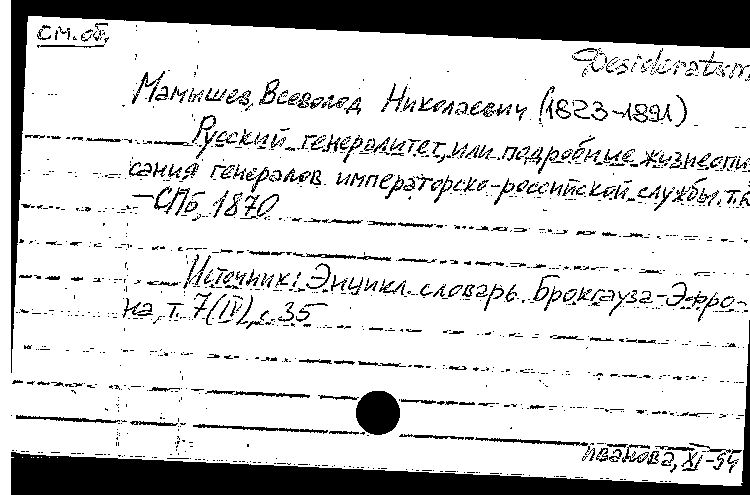 см. об.
Desideratum
Мамышев, Всеволод Николаевич (1823-1891)
Русский генералитет, или подробные жизнеопи
сания генералов императорско-российской службы. т.
-СПб, 1870
Источник: Энцикл. словарь Брокгауза-Эфро-
на, т. 7(IV), с. 35
Иванова, XI-94